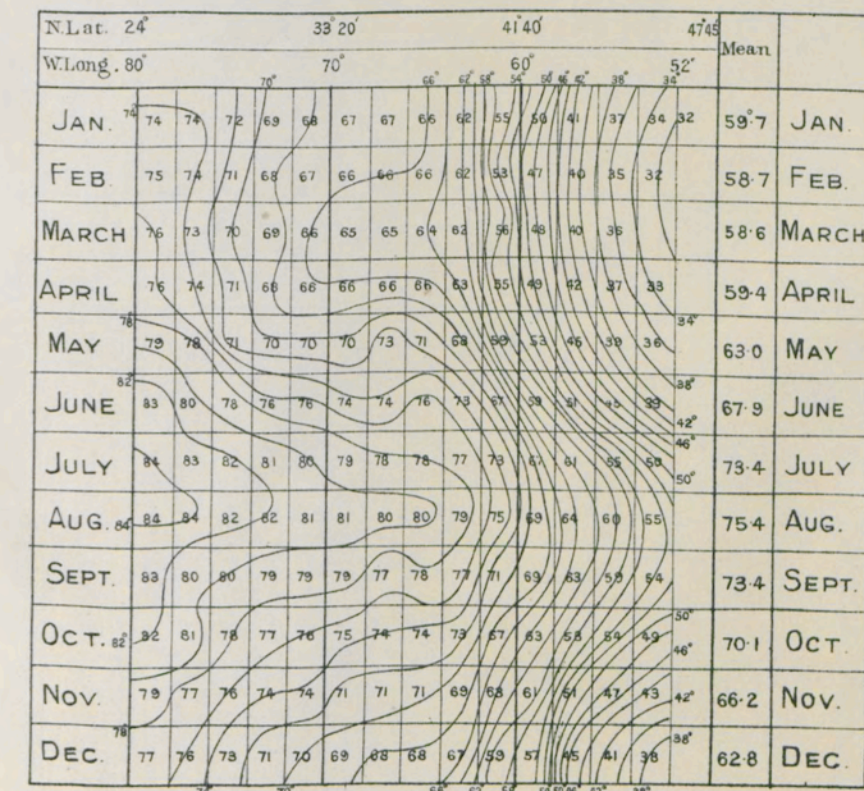 N.Lat. 24° 33° 20' 41° 40' 47° 45
W.Long. 80° 70° 60° 52° Mean
70° 66° 62° 58° 54° 50° 46° 42° 38° 34°
JAN. 74° 74 74 72 69 68 67 67 66 62 55 50 41 37 34 32 59°·7 JAN.
FEB. 75 74 71 68 67 66 66 66 62 53 47 40 35 32 58·7 FEB.
MARCH 76 73 70 69 66 65 65 64 62 56 48 40 36 58·6 MARCH
APRIL 76 74 71 68 66 66 66 66 63 55 49 42 37 33 59·4 APRIL
78° 34°
MAY 79 78 71 70 70 70 73 71 68 59 53 46 39 36 63·0 MAY
82° 38°
JUNE 83 80 78 76 76 74 74 76 73 67 59 51 45 39 42° 67·9 JUNE
46°
JULY 84 83 82 81 80 79 78 78 77 73 67 61 55 50 50° 73·4 JULY
AUG. 84° 84 84 82 82 81 81 80 80 79 75 69 64 60 55 75·4 AUG.
SEPT. 83 80 80 79 79 79 77 78 77 71 69 63 59 54 73·4 SEPT.
50°
OCT. 82° 82 81 78 77 76 75 74 74 73 67 63 58 54 49 46° 70·1 OCT.
NOV. 79 77 76 74 74 71 71 71 69 63 61 51 47 43 42° 66·2 NOV.
78° 38°
DEC. 77 76 73 71 70 69 68 68 67 59 57 45 41 38 62·8 DEC.